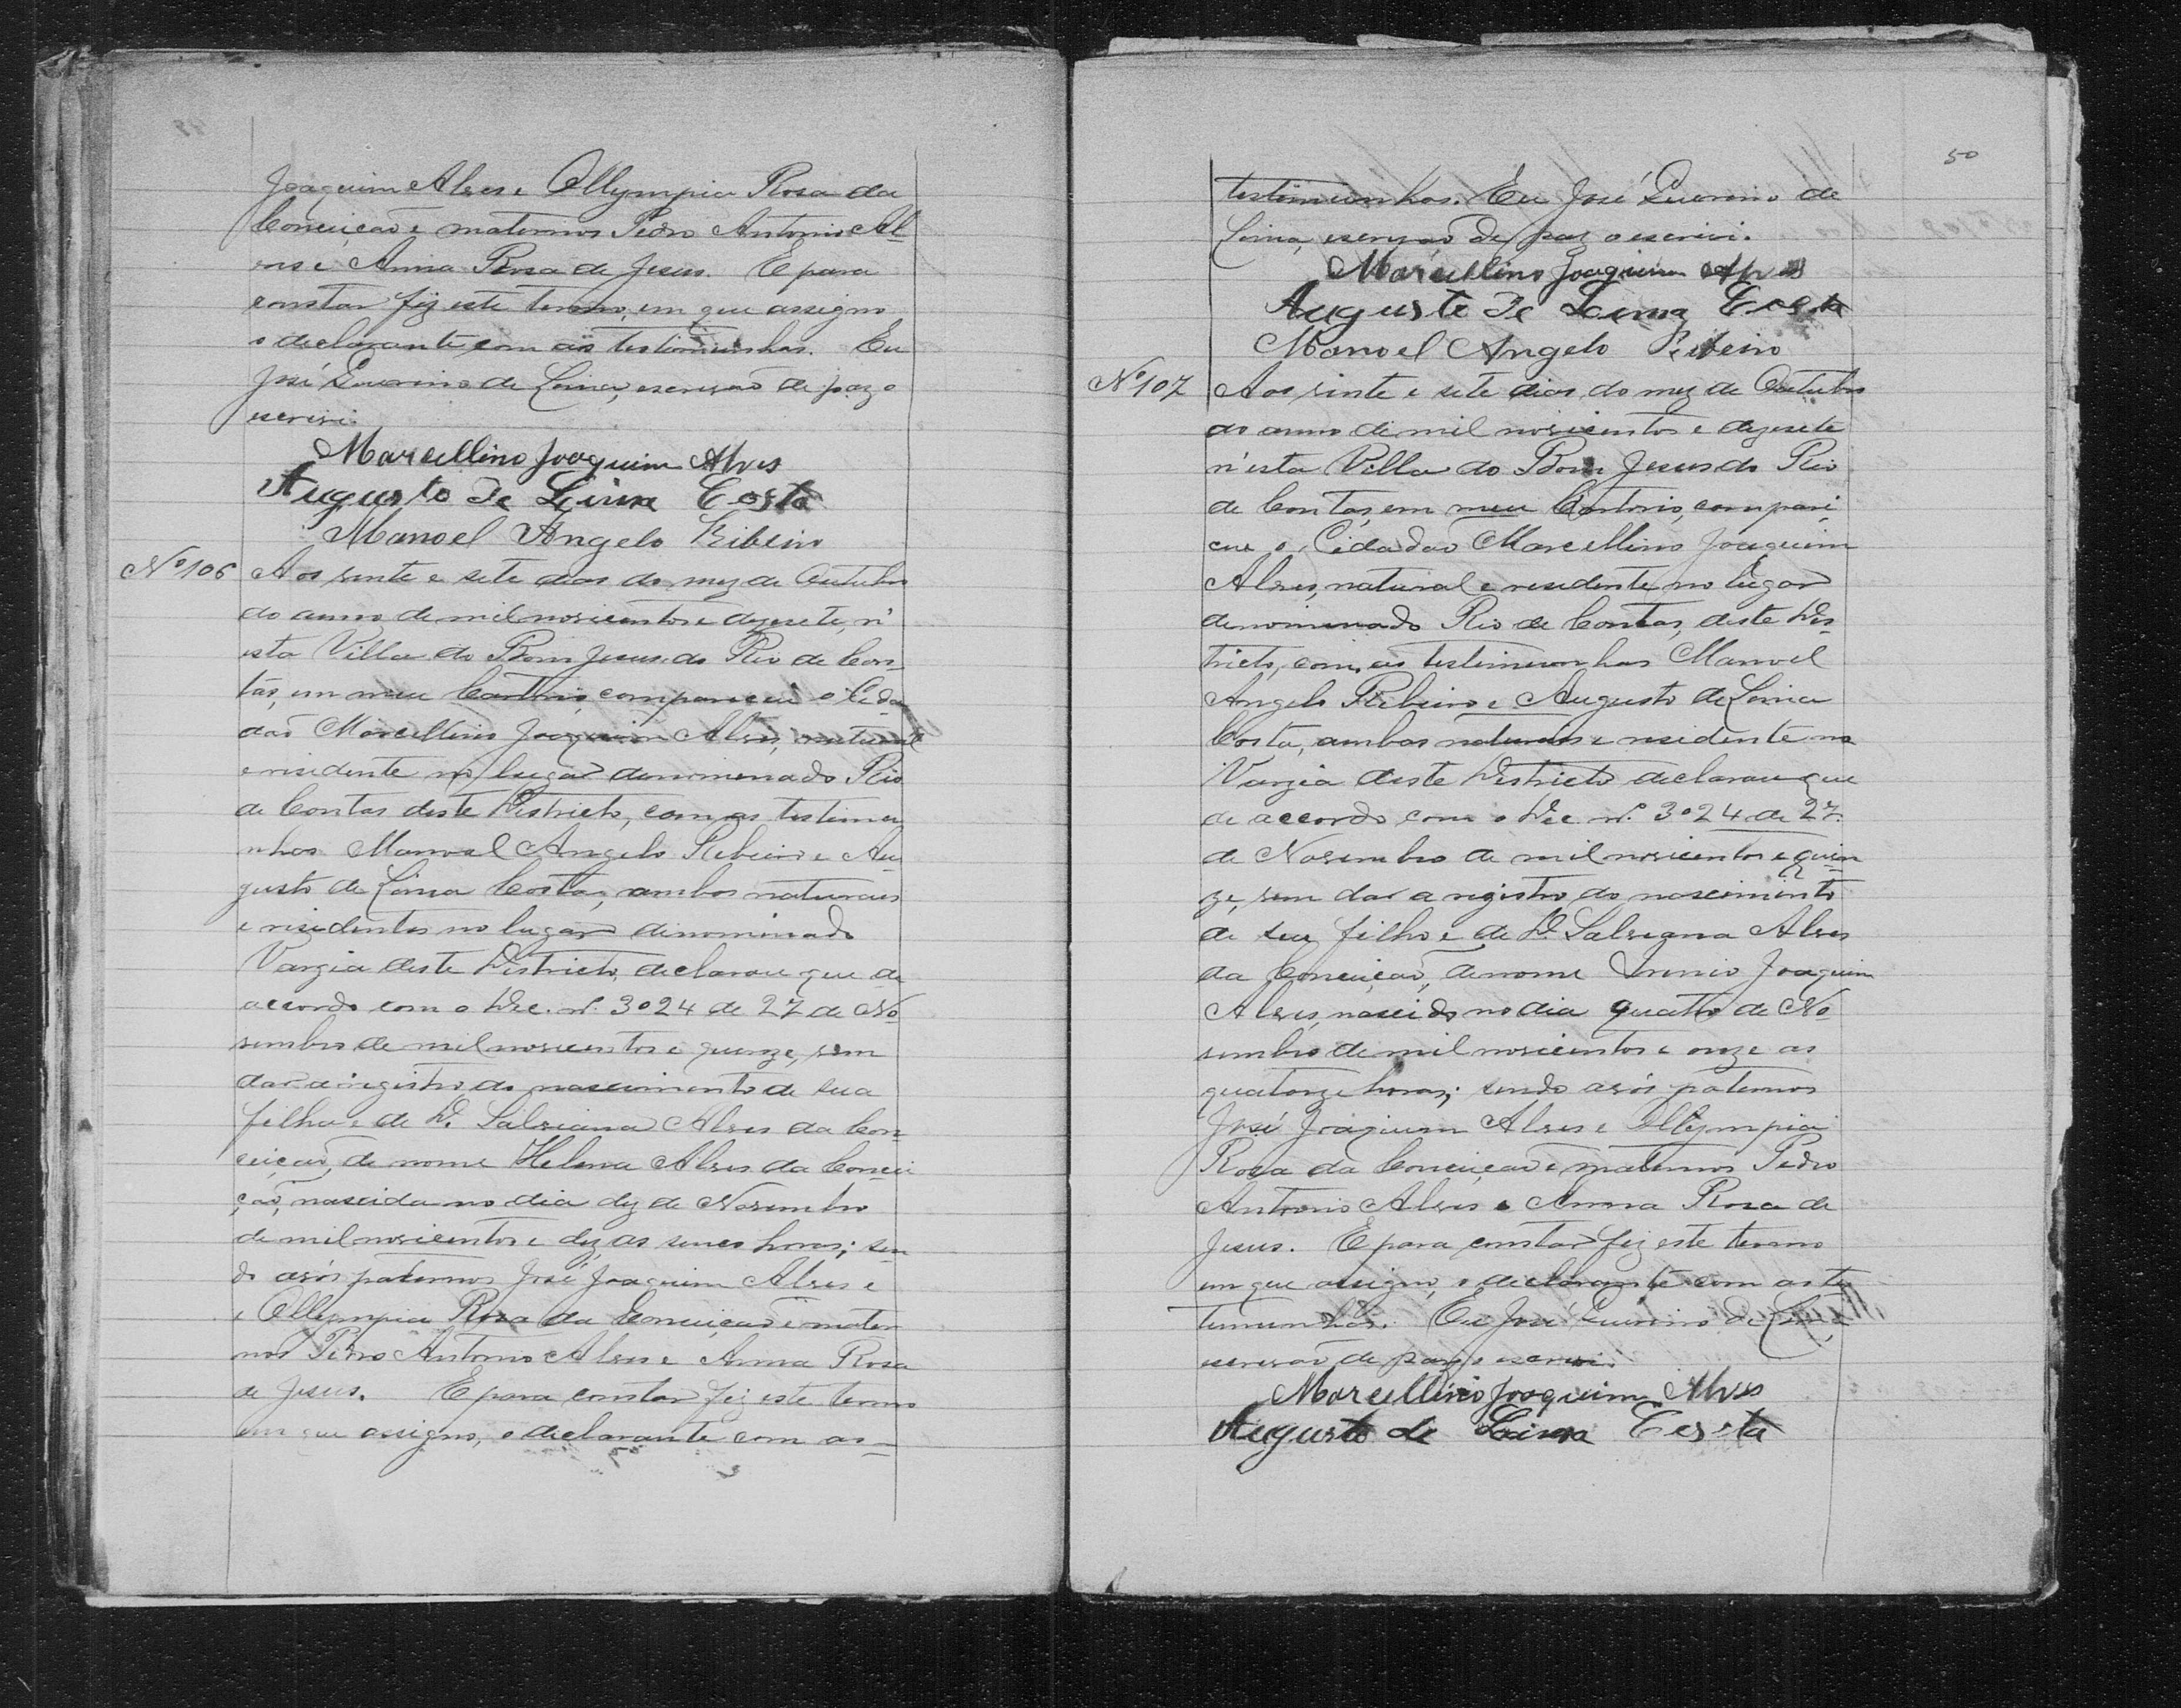 Joaquim Alves e Ollympia Rosa da
Conceição e maternos Pedro Antonio Al-
ves e Anna Rosa de Jesus. E para
constar fiz este termo, em que assigno
o declarante com as testimunhas. Eu
José Guerino de Lima, escrivão de paz o
escrivi.
Marcellino Joaquim Alves
Augusto de Lima Costa
Manoel Angelo Ribeiro
Nº 106 Aos vinte e sete dias do mez de Outubro
do anno de mil novicentos e dezesete, n'
esta Villa do Bom Jesus do Rio de Con-
tas, em meu Cartorio, compareceu o Cida
dão Marcellino Joaquim Alves, natural
e residente no lugar denominado Rio
de Contas deste Districto, com as testimu
nhas Manoel Angelo Ribeiro e Au
gusto de Lima Costa, ambos naturaes
e rezidentes no lugar dinominado
Vargia deste Districto, declarou que de
accordo com o Dec. nº 3024 de 27 de No
vembro de mil novicentos e quinze, vem
dar a registro do nascimento de sua
filha e de D. Salviana Alves da Con-
ceição, de nome Helena Alves da Concei
ção, nascida no dia dez de Novembro
de mil novicentos e dez, as cinco horas; sen
do avós paternos José Joaquim Alves e
e Ollympia Rosa da Conceição e mater
nos Pedro Antonio Alves e Anna Rosa
de Jesus. E para constar fiz este termo
em que assigno, o declarante com as
50
testimunhas. Eu José Guerino de
Lima, escrivão de paz o escrivi.
Marcellino Joaquim Alves
Augusto de Lima Costa
Manoel Angelo Ribeiro
Nº 107 Aos vinte e sete dias do mez de Outubro
do anno de mil novicentos e dezesete
n'esta Villa do Bom Jesus do Rio
de Contas, em meu Cartorio, compare
ceu o Cidadão Marcellino Joaquim
Alves, natural e residente no lugar
denominado Rio de Contas, deste Dis-
tricto, com as testimunhas Manoel
Angelo Ribeiro e Augusto de Lima
Costa, ambos naturaes e residente na
Vargia deste Districto declarou que
de accordo com o Dec. nº 3024 de 27
de Novembro de mil novicentos e quin
ze, vem dar a registro do nascimento
de seu filho e de D. Salviana Alves
da Conceição, de nome Joaquim
Alves, nascido no dia quatro de No
vembro de mil novicentos e onze as
quatorze horas; sendo avós paternos
José Joaquim Alves e Ollympia
Rosa da Conceição e maternos Pedro
Antonio Alves e Anna Rosa de
Jesus. E para constar fiz este termo
em que assigno, o declarante com as tes
temunhas. Eu José Guerino de Lima
escrivão de paz o escrivi.
Marcellino Joaquim Alves
Augusto de Lima Costa